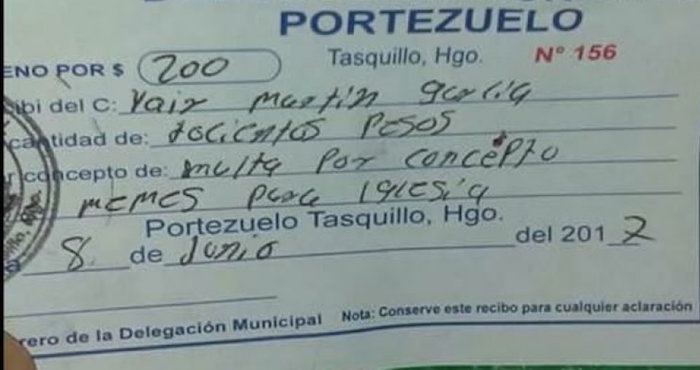 PORTEZUELO
Tasquillo, Hgo. N° 156
ENO POR $ 200
ibi del C: Yair martin garcia
cantidad de: docientos Pesos
r concepto de: multa Por concepto
MEMES para Iglesia
Portezuelo Tasquillo, Hgo.
a 8. de Junio del 2017
rero de la Delegación Municipal Nota: Conserve este recibo para cualquier aclaración